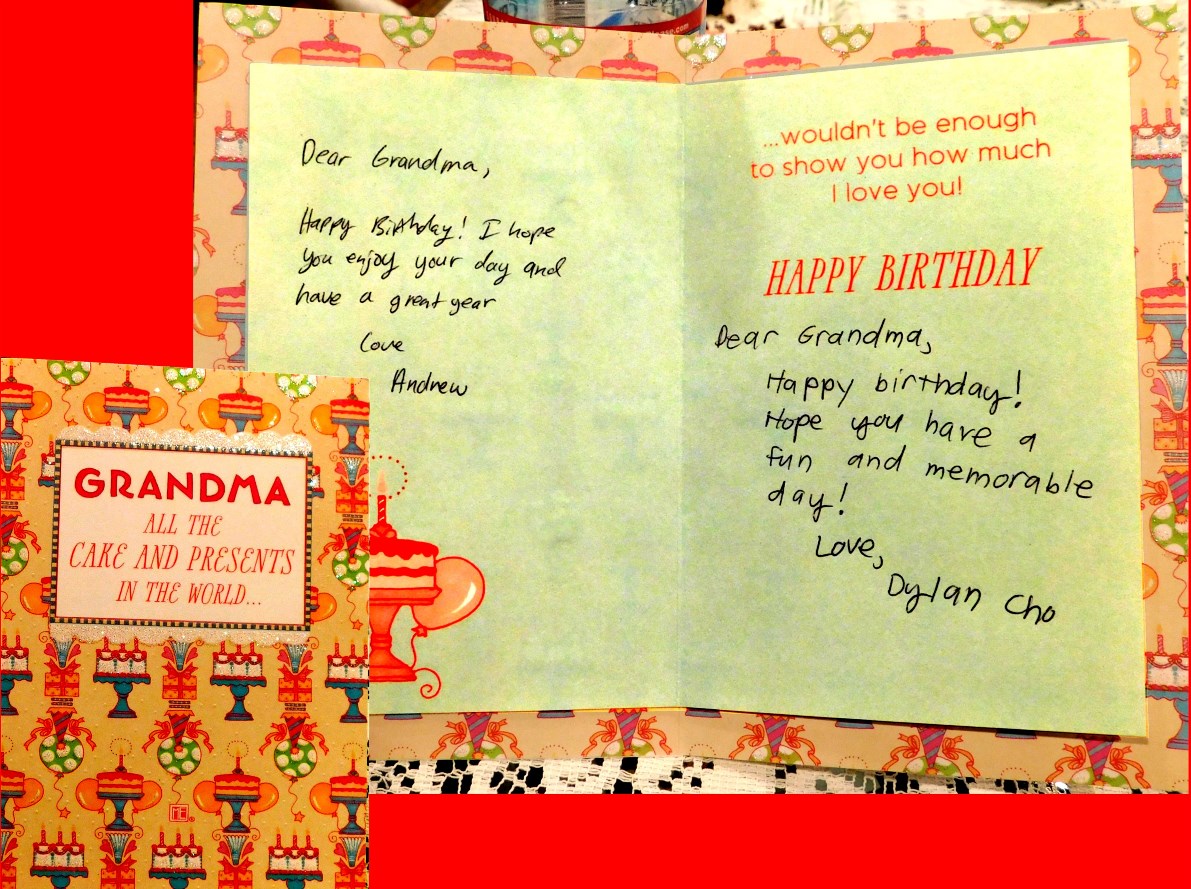 GRANDMA
ALL THE
CAKE AND PRESENTS
IN THE WORLD...
Dear Grandma,
Happy Birthday! I hope
you enjoy your day and
have a great year
Love
Andrew
...wouldn't be enough
to show you how much
I love you!
HAPPY BIRTHDAY
Dear Grandma,
Happy birthday!
Hope you have a
fun and memorable
day!
Love,
Dylan Cho